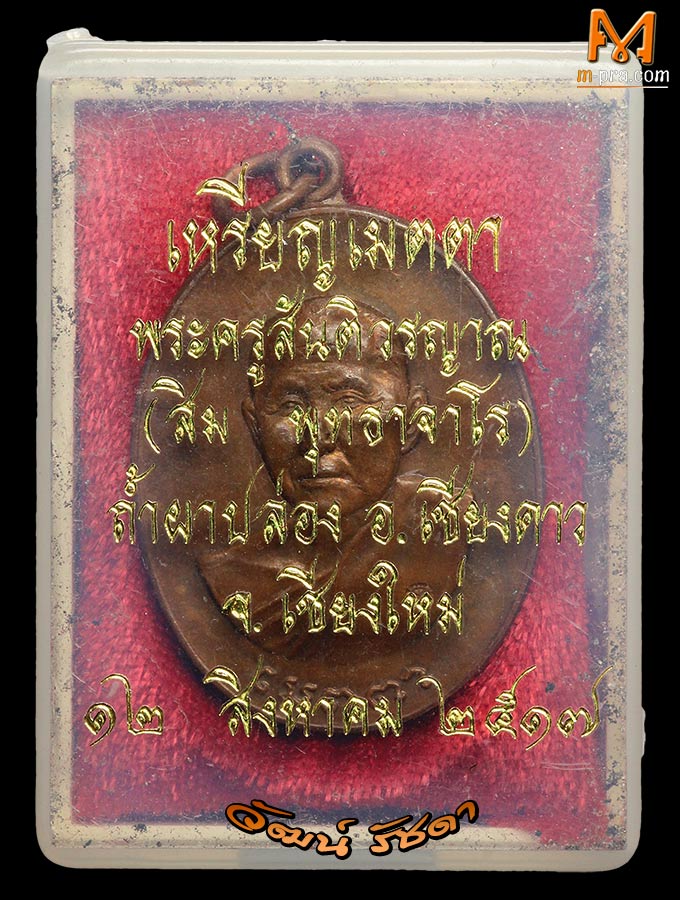 m-pra.com
เหรียญเมตตา
พระครูสันติวรญาณ
(สิม พุทธาจาโร)
ถ้ำผาปล่อง อ.เชียงดาว
จ.เชียงใหม่
๑๒ สิงหาคม ๒๕๑๗
วัฒน์ รัชดา